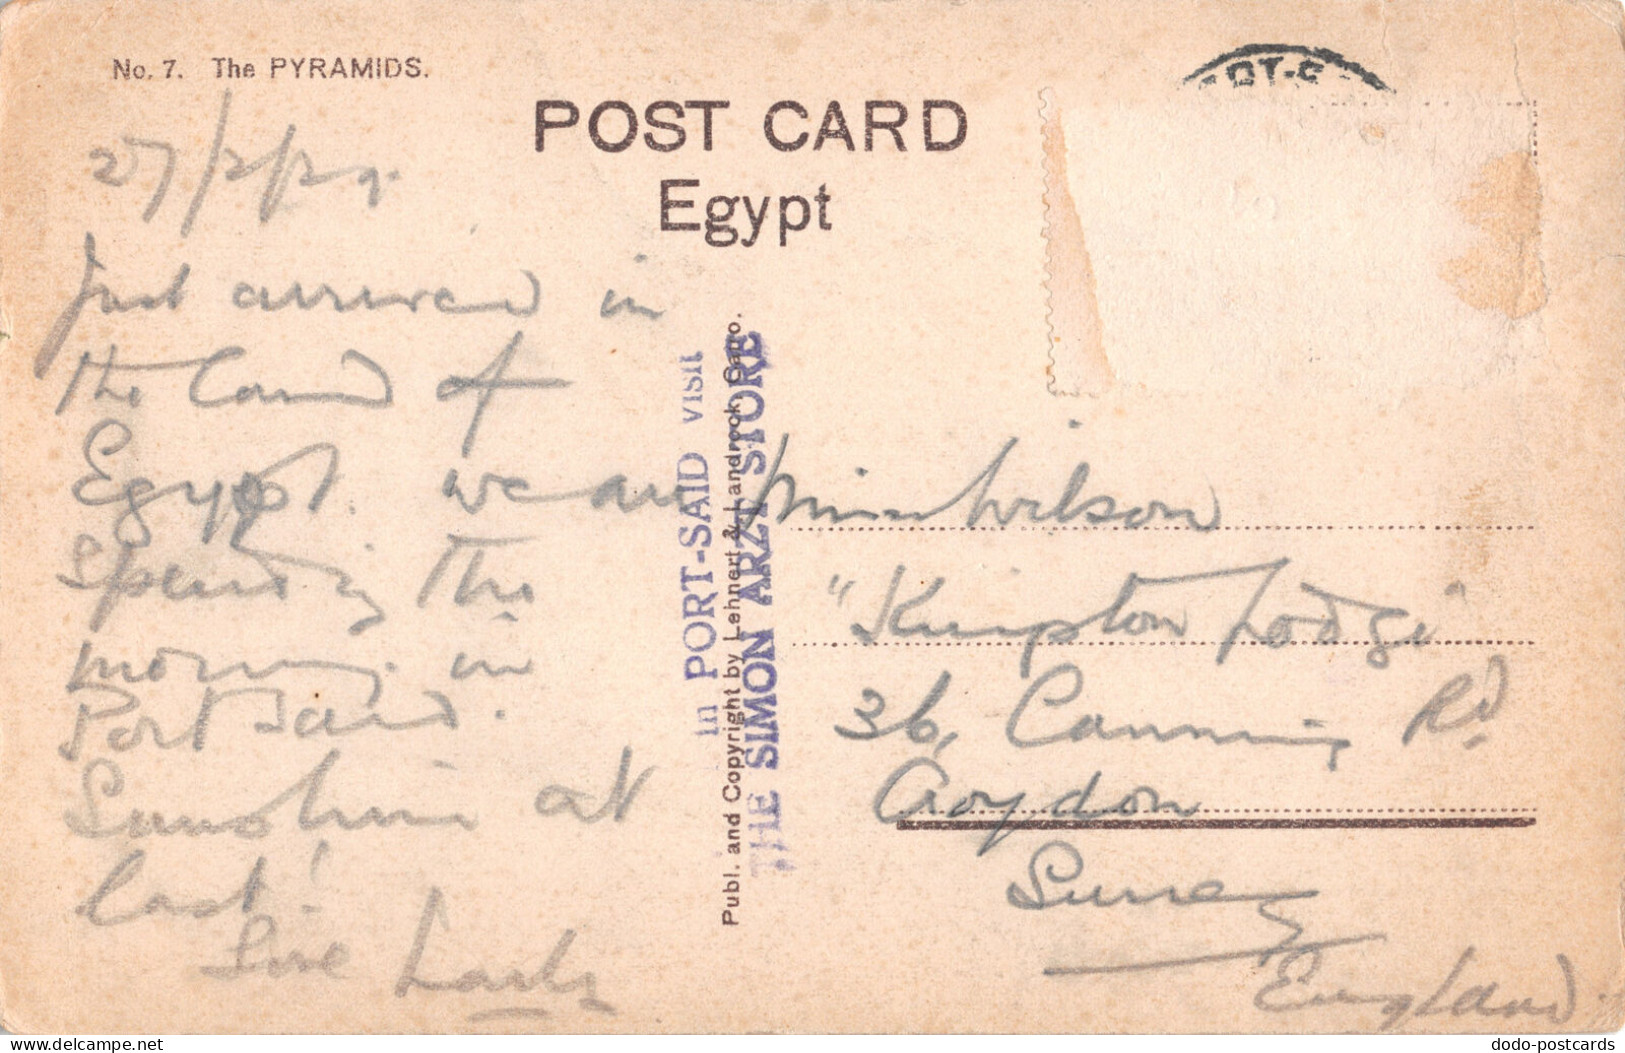 No. 7. The PYRAMIDS.
POST CARD
Egypt
27/2/29.
Just arrived in
the land of
Egypt. we are
spending the
morning in
Port Said.
Sunshine at
last!
Love
in PORT-SAID visit
THE SIMON ARZT STORE
Publ. and Copyright by Lehnert & Landrock, Cairo.
Miss Wilson
"Kimpton Lodge"
36, Canning Rd.
Croydon
Surrey
England.
delcampe.net
dodo-postcards